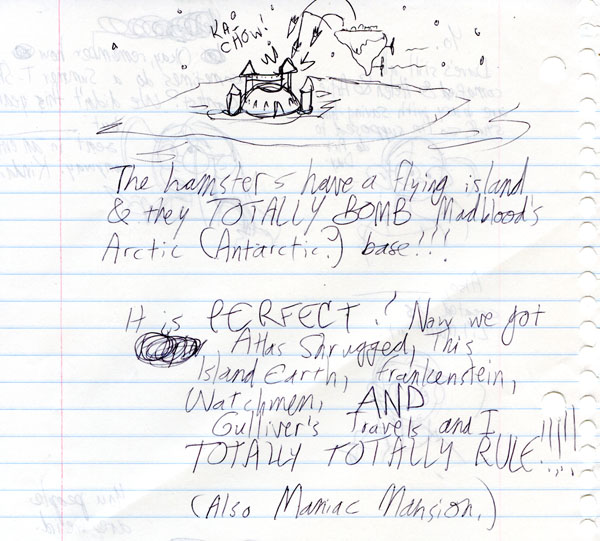 KA
CHOW!
The hamsters have a flying island
& they TOTALLY BOMB Madblood's
Arctic (Antarctic?) base!!!
It is PERFECT! Now we got
Atlas Shrugged, This
Island Earth, Frankenstein,
Watchmen, AND
Gulliver's Travels and I
TOTALLY TOTALLY RULE!!!!!
(Also Maniac Mansion.)